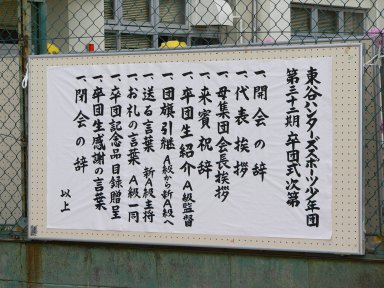 東谷ハンターズスポーツ少年団
第三十期 卒団式次第
一 開会の辞
一 代表挨拶
一 母集団会長挨拶
一 来賓祝辞
一 卒団生紹介 A級監督
一 団旗引継 A級から新A級へ
一 送る言葉 新A級主将
一 お礼の言葉 A級一同
一 卒団記念品目録贈呈
一 卒団生感謝の言葉
一 閉会の辞
以上